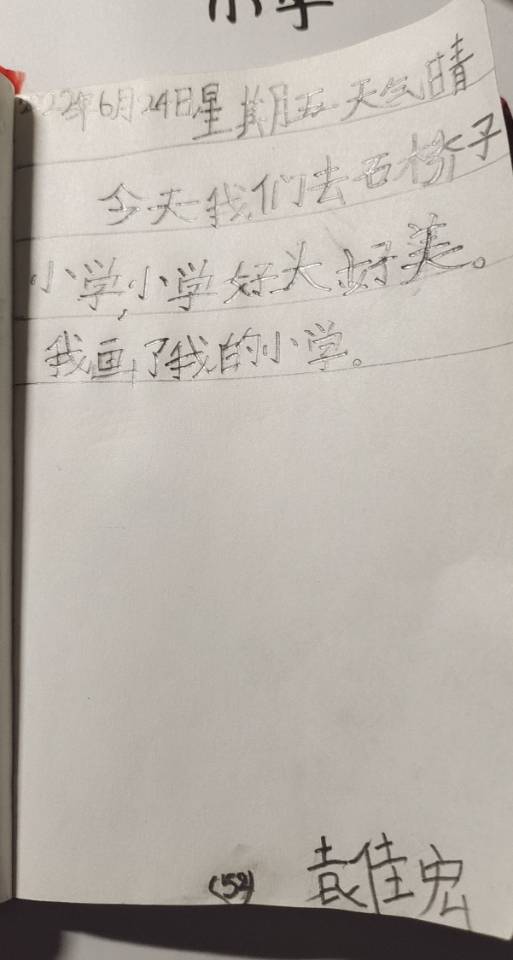 小学
2022年6月24日星期五天气晴
今天我们去石桥子
小学,小学好大好美。
我画了我的小学。
(52)
袁佳宏